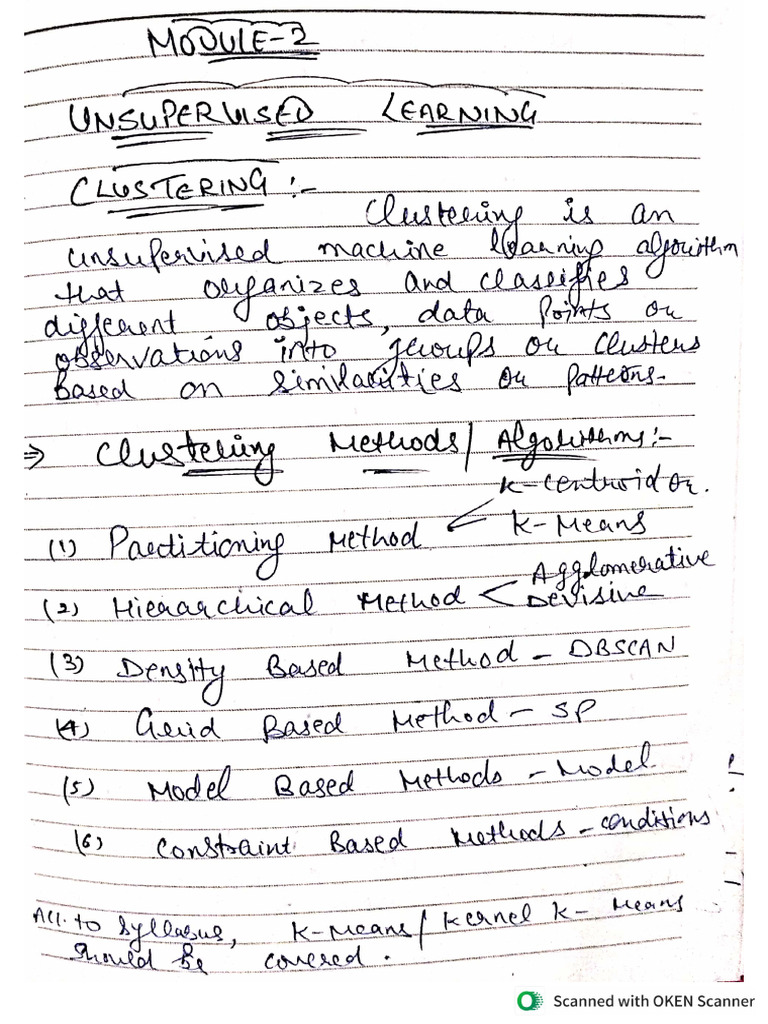 MODULE-2
UNSUPERVISED LEARNING
CLUSTERING :-
Clustering is an
unsupervised machine learning algorithm
that organizes and classifies
different objects, data points or
observations into groups or clusters
Based on similarities or patterns.
⇒ Clustering Methods/Algorithms:-
K-centroid or.
(1) Partitioning Method < K-Means
(2) Hierarchical Method < Agglomerative
Devisive
(3) Density Based Method - DBSCAN
(4) Grid Based Method - SP
(5) Model Based Methods - Model
(6) Constraint Based Methods - conditions
Acc. to syllabus, K-Means/Kernel K-Means
should be covered.
Scanned with OKEN Scanner